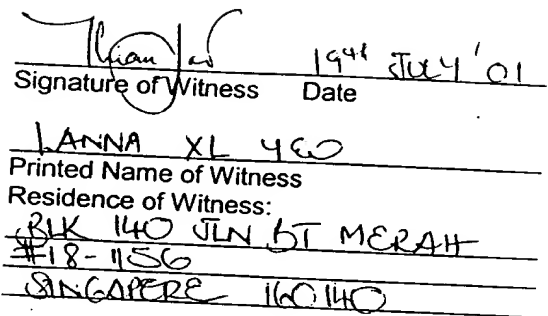 19th JULY '01
Signature of Witness Date
LANNA XL YEO
Printed Name of Witness
Residence of Witness:
BLK 140 JLN BT MERAH
#18-1156
SINGAPERE 160140